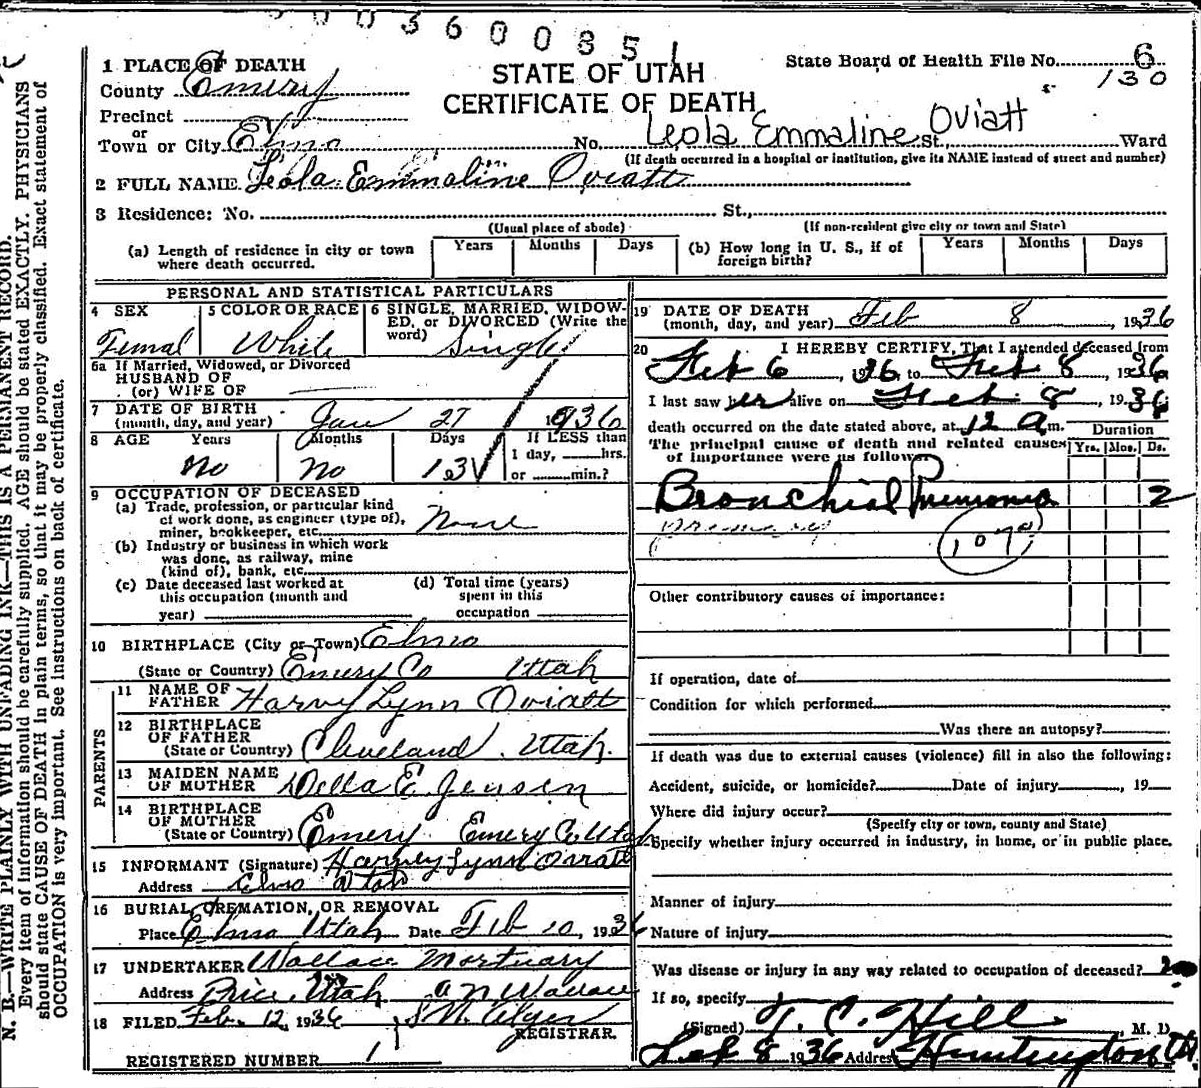 00360085 1
1 PLACE OF DEATH
County Emery
STATE OF UTAH
CERTIFICATE OF DEATH
State Board of Health File No. 6
130
Precinct
or
Town or City Elmo No. Leola Emmaline Oviatt St., Ward
(If death occurred in a hospital or institution, give its NAME instead of street and number)
2 FULL NAME Leola Emmaline Oviatt
3 Residence: No. St.,
(Usual place of abode) (If non-resident give city or town and State)
(a) Length of residence in city or town where death occurred. Years Months Days (b) How long in U. S., if of foreign birth? Years Months Days
PERSONAL AND STATISTICAL PARTICULARS
4 SEX 5 COLOR OR RACE 6 SINGLE, MARRIED, WIDOW-
ED, or DIVORCED (Write the
word)
Femal White Single
6a If Married, Widowed, or Divorced
HUSBAND OF
(or) WIFE OF
7 DATE OF BIRTH
(month, day, and year) Jan 27 1936
8 AGE Years Months Days If LESS than
1 day, hrs.
or min.?
No No 13
9 OCCUPATION OF DECEASED
(a) Trade, profession, or particular kind
of work done, as engineer (type of),
miner, bookkeeper, etc. None
(b) Industry or business in which work
was done, as railway, mine
(kind of), bank, etc.
(c) Date deceased last worked at
this occupation (month and
year)
(d) Total time (years)
spent in this
occupation
10 BIRTHPLACE (City or Town) Elmo
(State or Country) Emery Co Utah
PARENTS
11 NAME OF
FATHER Harvy Lynn Oviatt
12 BIRTHPLACE
OF FATHER
(State or Country) Cleveland, Utah.
13 MAIDEN NAME
OF MOTHER Della E. Jensen
14 BIRTHPLACE
OF MOTHER
(State or Country) Emery Emery Co. Utah
15 INFORMANT (Signature) Harvey Lynn Oviatt
Address Elmo Utah
16 BURIAL, CREMATION, OR REMOVAL
Place Elmo Utah Date Feb 10, 1936
17 UNDERTAKER Wallace Mortuary
Address Price, Utah a N Wallace
18 FILED Feb. 12, 1936
REGISTRAR.
REGISTERED NUMBER 1
19 DATE OF DEATH
(month, day, and year) Feb 8, 1936
20 I HEREBY CERTIFY, That I attended deceased from
Feb 6, 1936, to Feb 8, 1936
I last saw her alive on Feb 8, 1936
death occurred on the date stated above, at 12 A m.
The principal cause of death and related causes
of importance were as follows:
Duration
Yrs. Mos. Ds.
Bronchial Pneumonia 2
Primary
107a
Other contributory causes of importance:
If operation, date of
Condition for which performed
Was there an autopsy?
If death was due to external causes (violence) fill in also the following:
Accident, suicide, or homicide? Date of injury, 19
Where did injury occur?
(Specify city or town, county and State)
Specify whether injury occurred in industry, in home, or in public place.
Manner of injury
Nature of injury
Was disease or injury in any way related to occupation of deceased?
If so, specify
(Signed) T. C. Hill, M. D.
Feb 8 1936 Address Huntington Ut
N. B.—WRITE PLAINLY WITH UNFADING INK—THIS IS A PERMANENT RECORD.
Every item of information should be carefully supplied. AGE should be stated EXACTLY. PHYSICIANS
should state CAUSE OF DEATH in plain terms, so that it may be properly classified. Exact statement of
OCCUPATION is very important. See instructions on back of certificate.